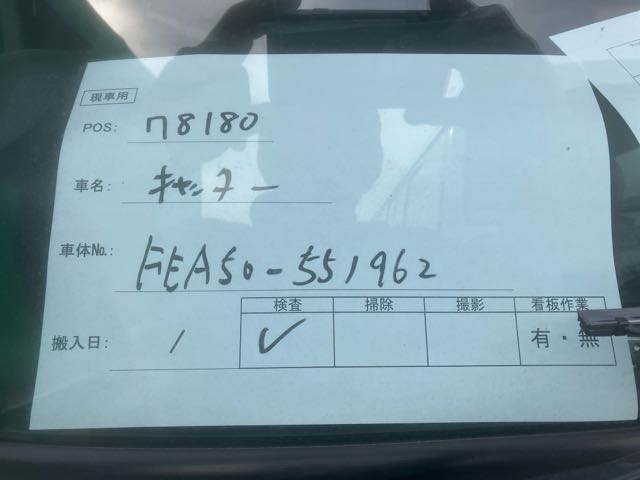 現車用
POS: 78180
車名: キャンター
車体No.: FEA50-551962
検査 掃除 撮影 看板作業
搬入日: / ✓ 有・無